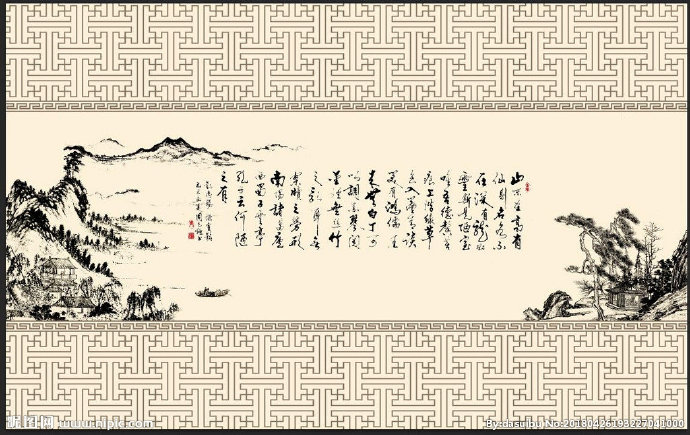 山不在高有
仙则名水不
在深有龙则
灵斯是陋室
唯吾德馨苔
痕上阶绿草
色入帘青谈
笑有鸿儒往
来无白丁可
以调素琴阅
金经无丝竹
之乱耳无
案牍之劳形
南阳诸葛庐
西蜀子云亭
孔子云何陋
之有
昵图网 www.nipic.com
By:dasuibu No:20180426193227041000